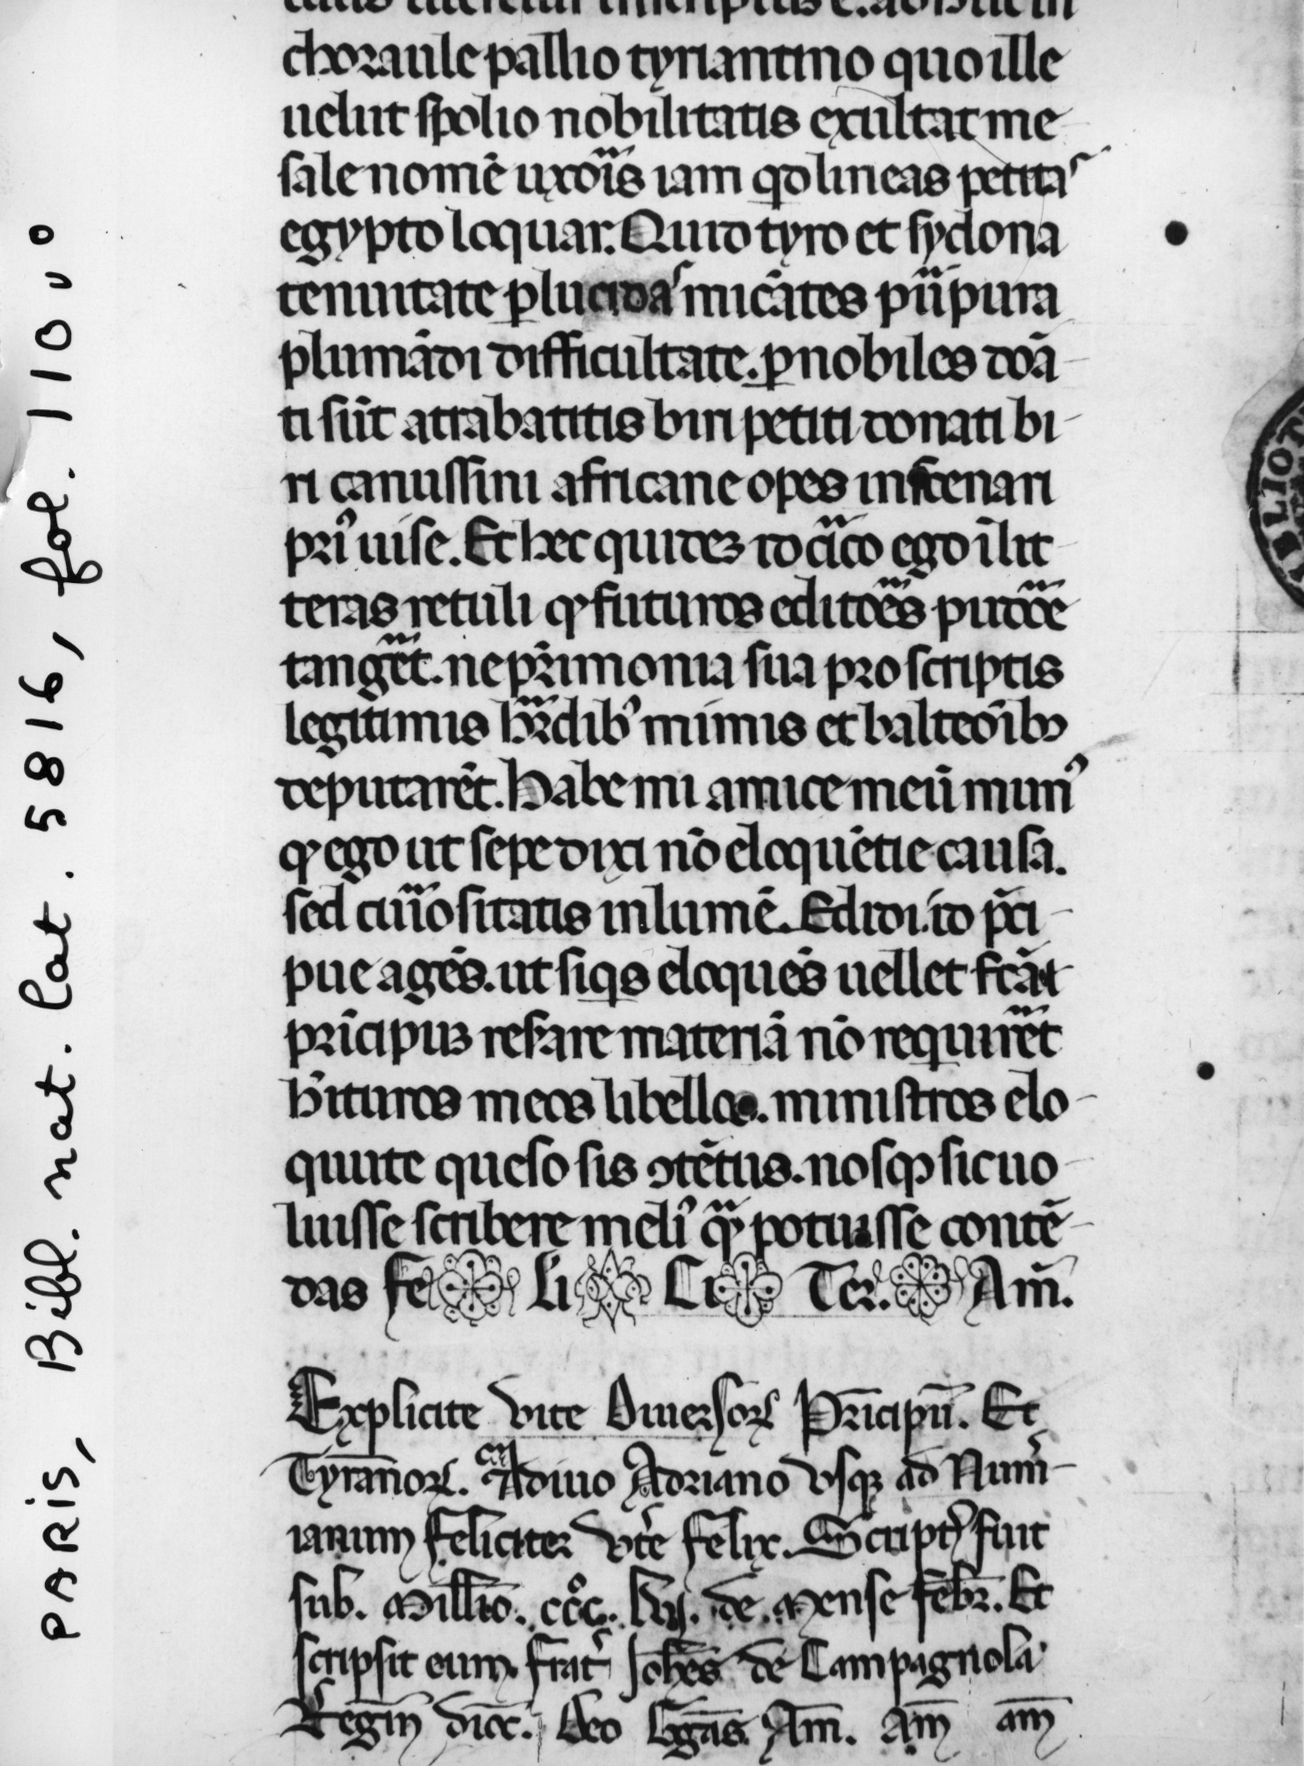 choraule pallio tyriantino quo ille
uelut spolio nobilitatis exultat me-
sale nomē uxoris iam qd lineas petitas
egypto loquar. Quid tyro et sydona
tenuitate plucidas micātes purpura
plumādi difficultate. pnobiles dōa-
ti sūt atrabatitis biri petiti donati bi-
ri canussini africane opes inscenari
pri' uise. Et hec quidez idcirco ego ī lit-
teras retuli qꝫ futuros editōes pudore
tangēt. ne prīmonia sua proscriptis
legitimis hrdib' mimis et balteōibꝫ
deputarēt. Habe mi amice meū mun'
qꝫ ego ut sepe dixi nō eloquētie causa.
sed curiositatis in lumē. Edidi. id pci-
pue agēs. ut siqs eloquēs uellet fcā
prīcipuꝫ reserare materiā nō requirēt
hituros meos libellos. ministros elo-
quiite queso sis ꝯtētus. nosqꝫ sic uo-
luisse scribere meli' qꝫ potuisse contē-
das Fe Li Ci Ter. Am̄.
Explicite vite Diuersorꝝ Prīcipū. Et
Tyrānorꝝ. A diuo Adriano vsqꝫ ad Num̄-
ianum feliciter vtē felix. Script' fuit
sub. Mill̄io. ccc°. lvj. de. Mense febr̄. Et
scripsit eum. frat' Joh̄es de Campagnola
Regin̄ dioc̄. Deo Gr̄as. Am̄. am̄ am̄
PARIS, Bibl. nat. lat. 5816, fol. 110 v°